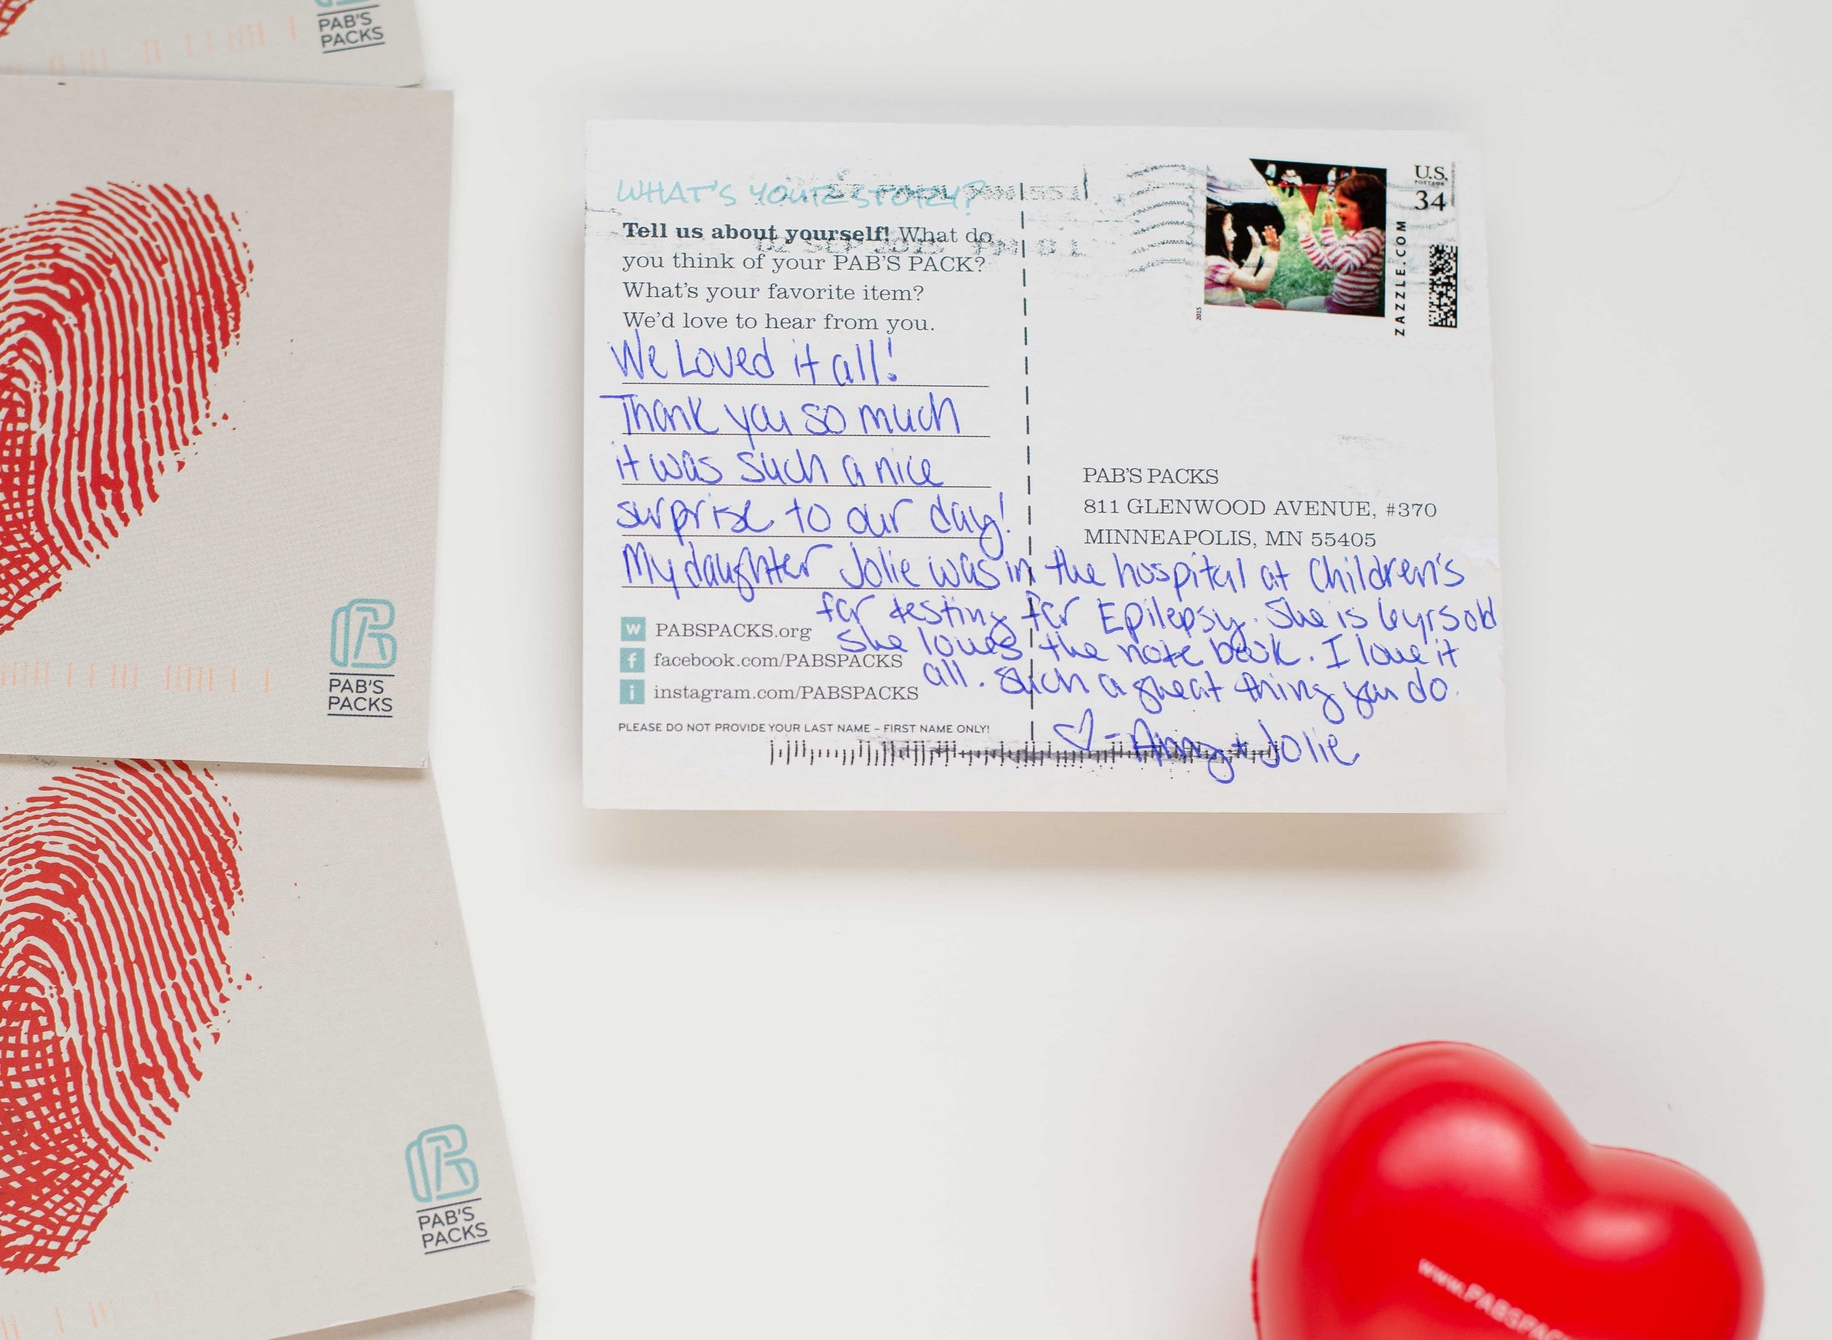 PAB'S
PACKS
PAB'S
PACKS
PAB'S
PACKS
WHAT'S YOUR STORY?
Tell us about yourself! What do
you think of your PAB'S PACK?
What's your favorite item?
We'd love to hear from you.
We Loved it all!
Thank you so much
it was such a nice
surprise to our day!
My daughter Jolie was in the hospital at Children's
for testing for Epilepsy. She is 6yrs old
she loves the note book. I love it
all. Such a great thing you do.
- Amy + Jolie
W PABSPACKS.org
f facebook.com/PABSPACKS
i instagram.com/PABSPACKS
PLEASE DO NOT PROVIDE YOUR LAST NAME – FIRST NAME ONLY!
U.S.
POSTAGE
34
ZAZZLE.COM
2015
PAB'S PACKS
811 GLENWOOD AVENUE, #370
MINNEAPOLIS, MN 55405
www.PABSPAC